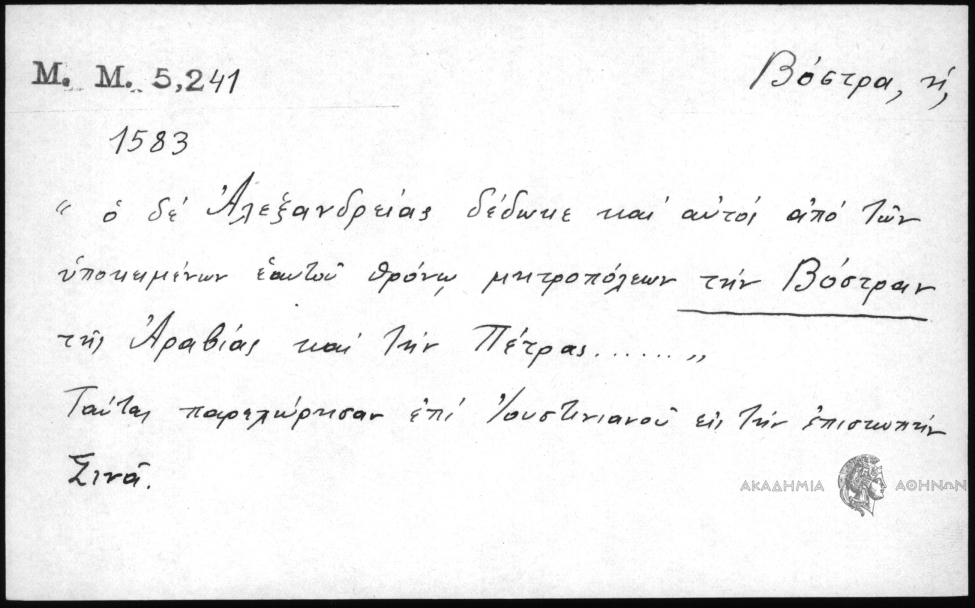 Μ. Μ. 5,241
Βόστρα, ἡ,
1583
" ὁ δέ Ἀλεξανδρείας δέδωκε καί αὐτός ἀπό τῶν
ὑποκειμένων ἑαυτοῦ θρόνῳ μητροπόλεων τήν Βόστραν
τῆς Ἀραβίας καί τήν Πέτρας....... "
Ταύτας παρεχώρησαν ἐπί Ἰουστινιανοῦ εἰς τήν ἐπισκοπήν
Σινᾶ.
ΑΚΑΔΗΜΙΑ ΑΘΗΝΩΝ